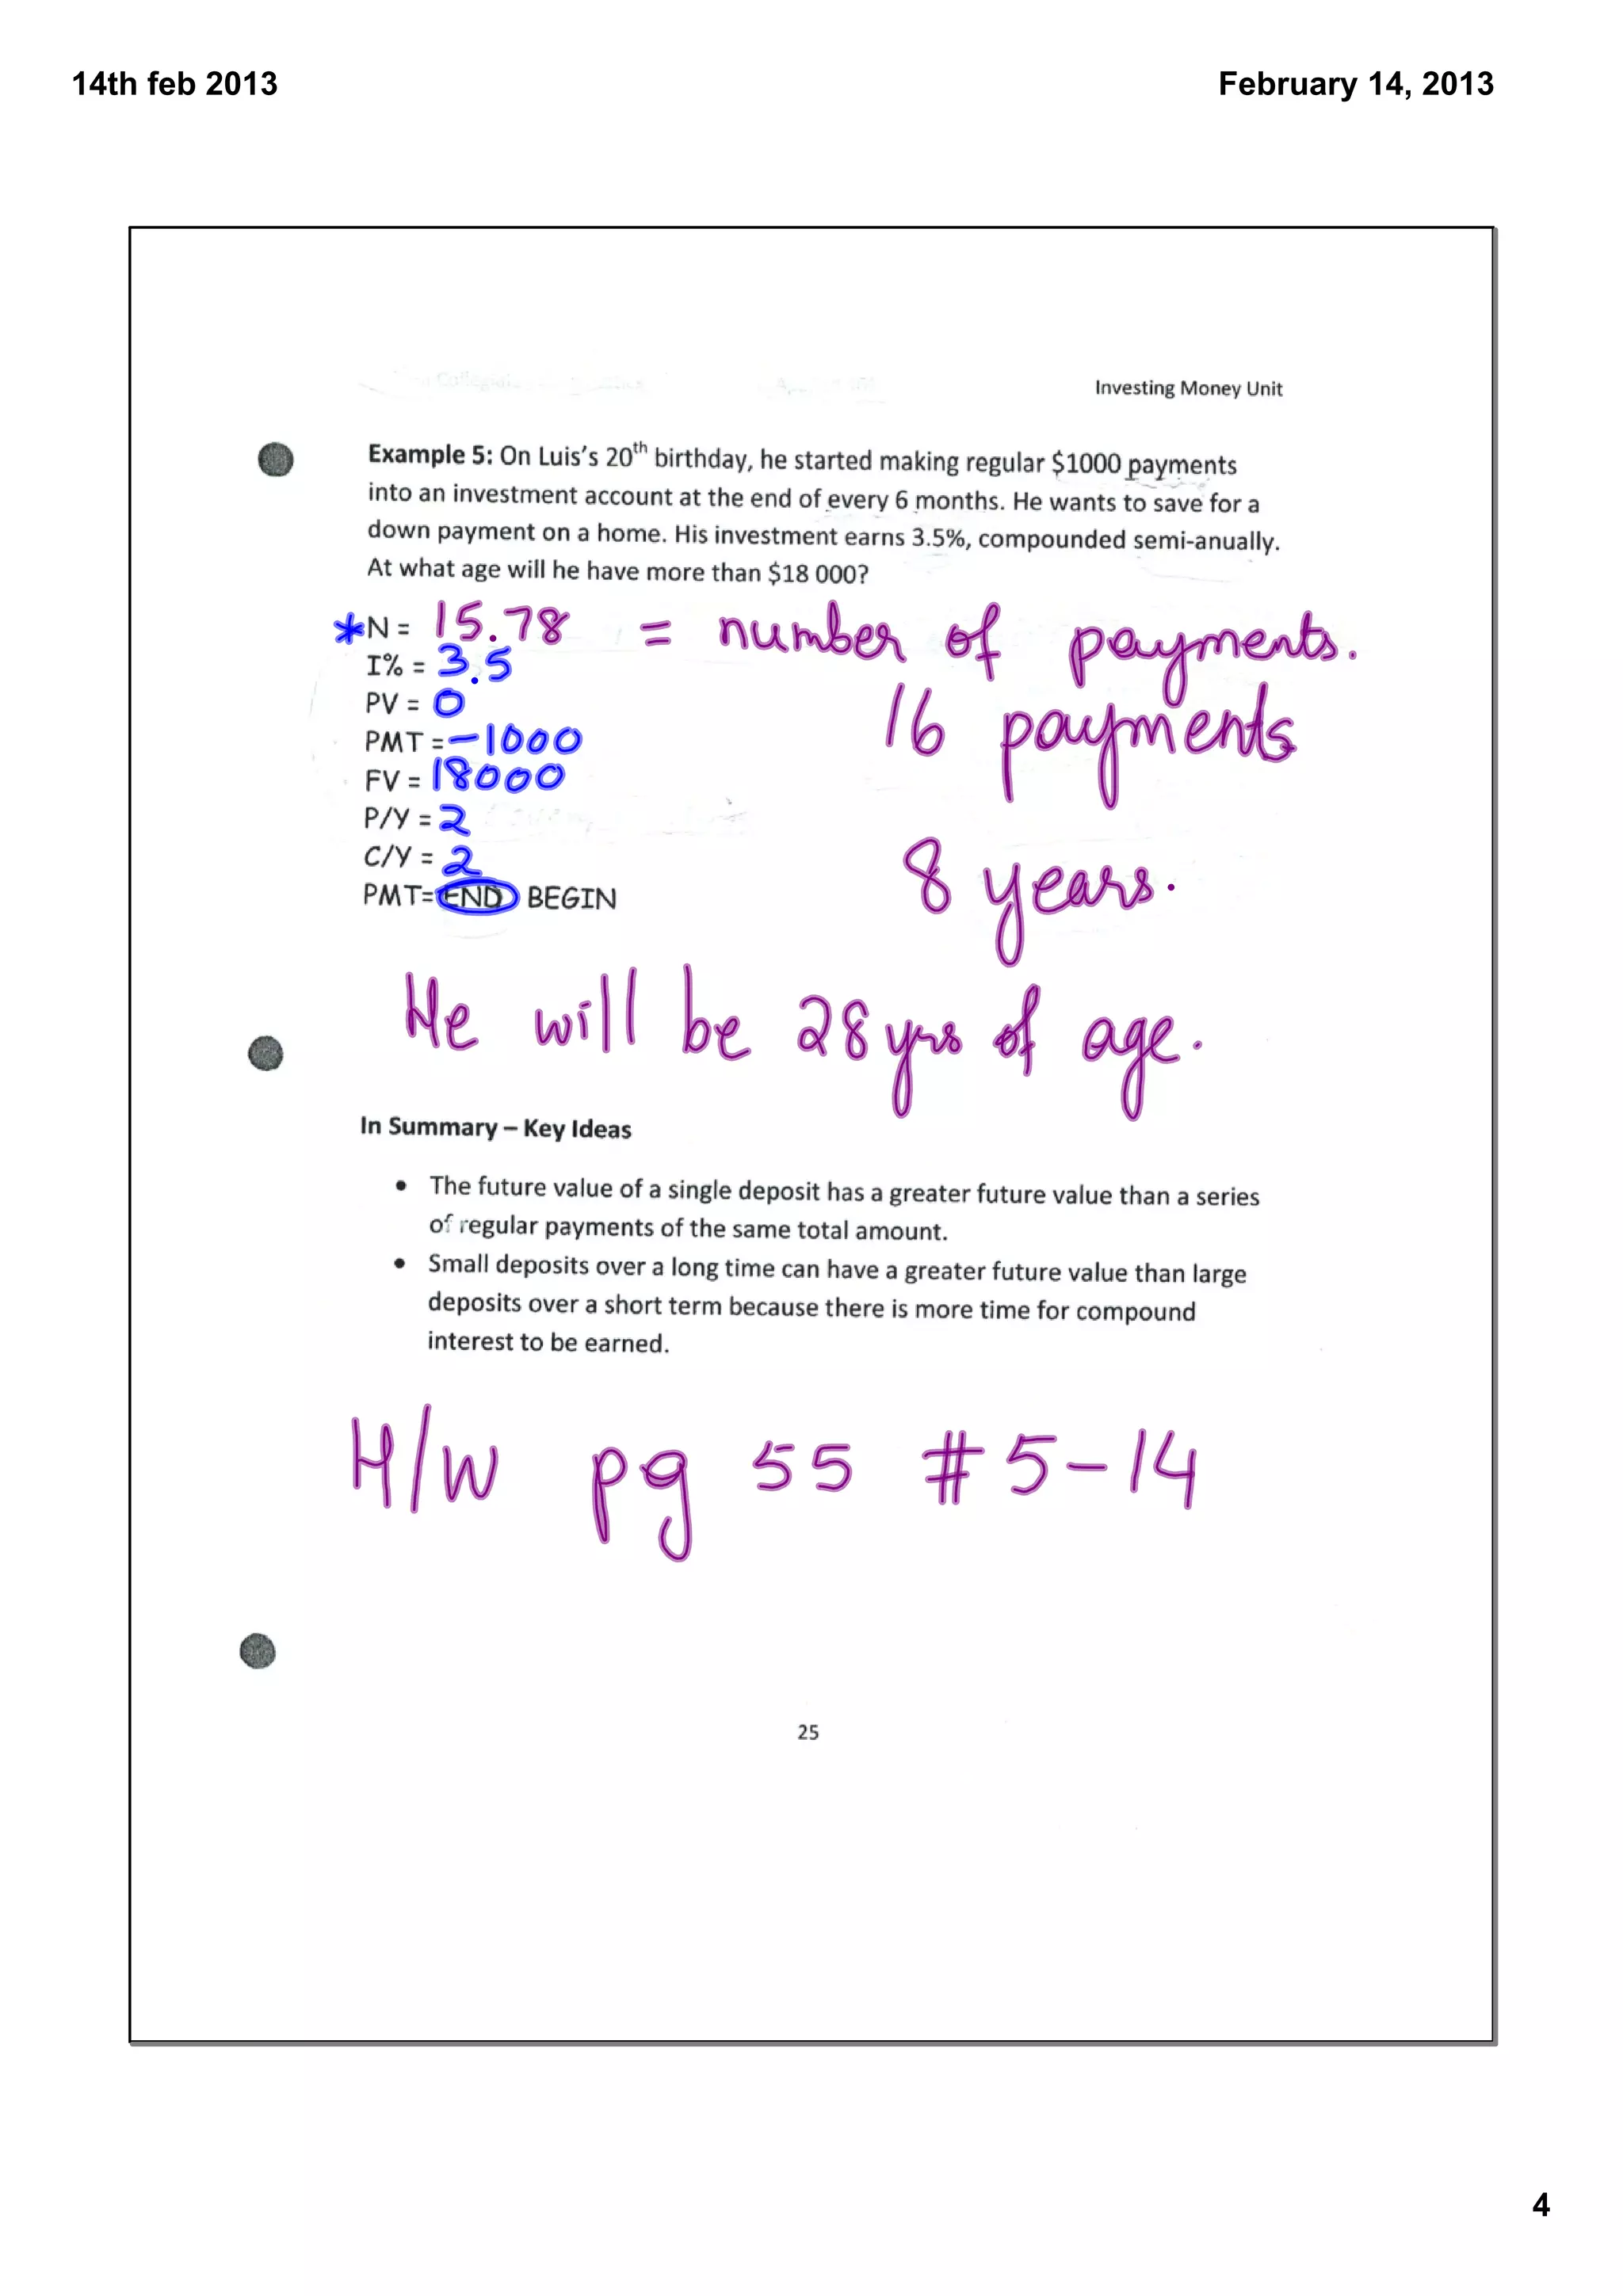 14th feb 2013
February 14, 2013
Investing Money Unit
Example 5: On Luis's 20th birthday, he started making regular $1000 payments
into an investment account at the end of every 6 months. He wants to save for a
down payment on a home. His investment earns 3.5%, compounded semi-anually.
At what age will he have more than $18 000?
*N = 15.78 = number of payments.
I% = 3.5
PV = 0
16 payments
PMT = -1000
FV = 18000
P/Y = 2
C/Y = 2
8 years.
PMT= END BEGIN
He will be 28 yrs of age.
In Summary – Key Ideas
• The future value of a single deposit has a greater future value than a series
of regular payments of the same total amount.
• Small deposits over a long time can have a greater future value than large
deposits over a short term because there is more time for compound
interest to be earned.
H/W pg 55 #5-14
25
4